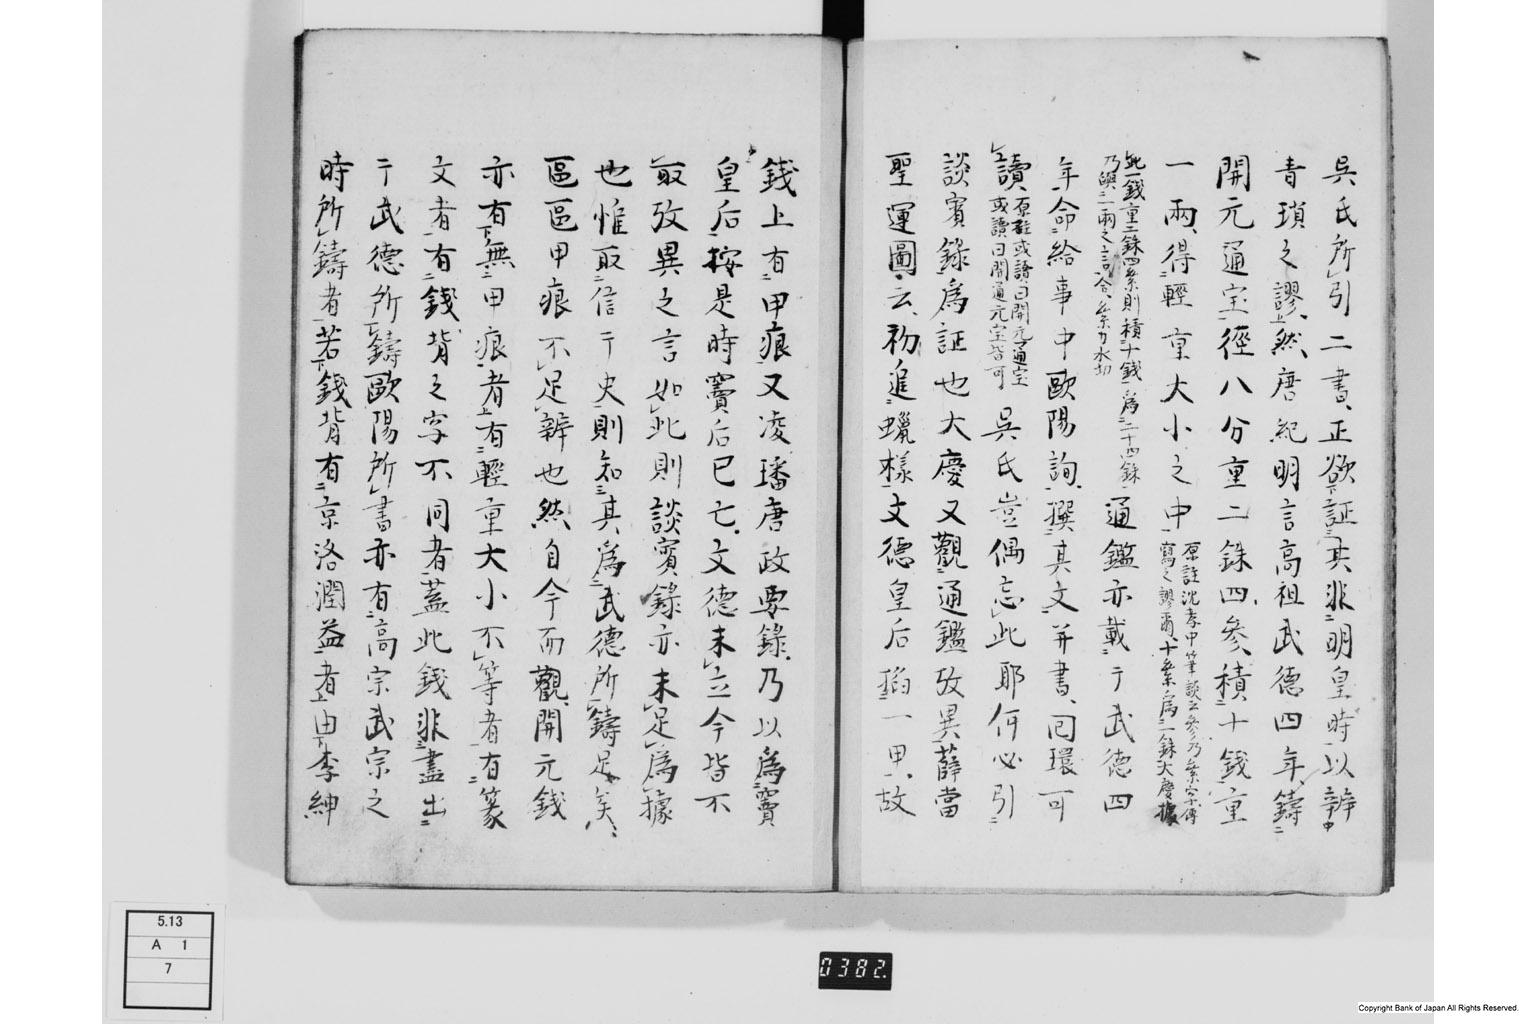 呉氏所引二書正欲証其非明皇時以辨
青瑣之謬然唐紀明言高祖武德四年鋳
開元通宝徑八分重二銖四参積十銭重
一兩得輕重大小之中
原註沈存中筆談云参乃絫字傳
寫之謬爾十絫為一銖大慶據
此一銭重二銖四絫則積十銭為二十四銖
乃與一兩之言合絫力水切
通鑑亦載于武德四
年命給事中歐陽詢撰其文并書回環可
讀
原註或讀曰開元通宝
或讀曰開通元宝皆可
呉氏豈偶忘此耶何必引
談賓錄為証也大慶又觀通鑑攷異薛當
聖運圖云初進蠟樣文德皇后搯一甲故
銭上有甲痕又凌璠唐政要錄乃以為竇
皇后按是時竇后已亡文德未立今皆不
取攷異之言如此則談賓錄亦未足為據
也惟取信于史則知其為武德所鋳足矣
區區甲痕不足辨也然自今而觀開元銭
亦有無甲痕者有輕重大小不等者有篆
文者有銭背之字不同者蓋此銭非盡出
于武德所鋳歐陽所書亦有高宗武宗之
時所鋳者若銭背有京洛潤益者由李紳
5.13
A 1
7
0382
Copyright Bank of Japan All Rights Reserved.